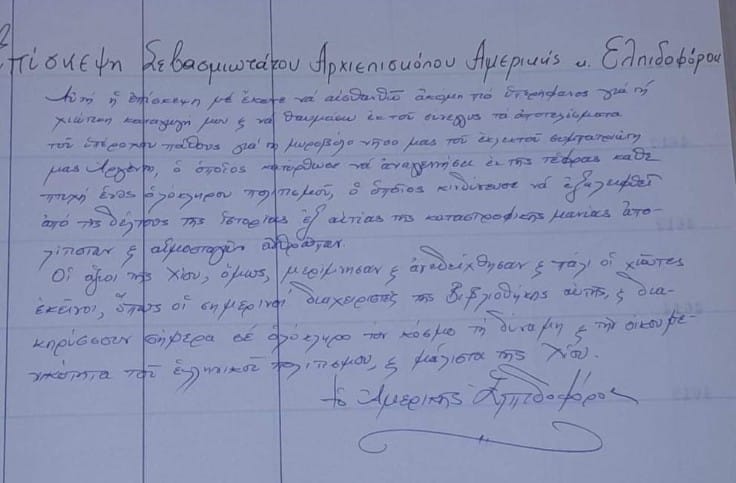 Επίσκεψη Σεβασμιωτάτου Αρχιεπισκόπου Αμερικής κ. Ελπιδοφόρου
Αὐτή ἡ ἐπίσκεψη μέ ἔκανε νά αἰσθανθῶ ἀκόμη πιό ὑπερήφανος γιά τή
χιώτικη καταγωγή μου ς νά θαυμάσω ἐκ τοῦ σύνεγγυς τά ἀποτελέσματα
τοῦ ὑπέροχου πάθους γιά τή μυροβόλο νῆσο μας τοῦ ἐκλεκτοῦ συμπατριώτη
μας Ἀργέντη, ὁ ὁποῖος κατόρθωσε νά ἀναγεννήσει ἐκ τῆς τέφρας κάθε
πτυχή ἑνός ὁλόκληρου πολιτισμοῦ, ὁ ὁποῖος κινδύνευσε νά ἐξαλειφθεῖ
ἀπό τίς δέλτους τῆς ἱστορίας ἐξ αἰτίας τῆς καταστροφικῆς μανίας ἀπο-
λίτιστων ς αἱμοσταγῶν ἀνθρώπων.
Οἱ ἅγιοι τῆς Χίου, ὅμως, μερίμνησαν ς ἀνεδείχθησαν ς πάλι οἱ χιῶτες
ἐκεῖνοι, ὅπως οἱ σημερινοί διαχειριστές τῆς Βιβλιοθήκης αὐτῆς, ς δια-
κηρύσσουν σήμερα σέ ὁλόκληρο τόν κόσμο τή δύναμη ς τήν οἰκουμε-
νικότητα τοῦ ἑλληνικοῦ πολιτισμοῦ, ς μάλιστα τῆς Χίου.
† ὁ Ἀμερικῆς Ἐλπιδοφόρος